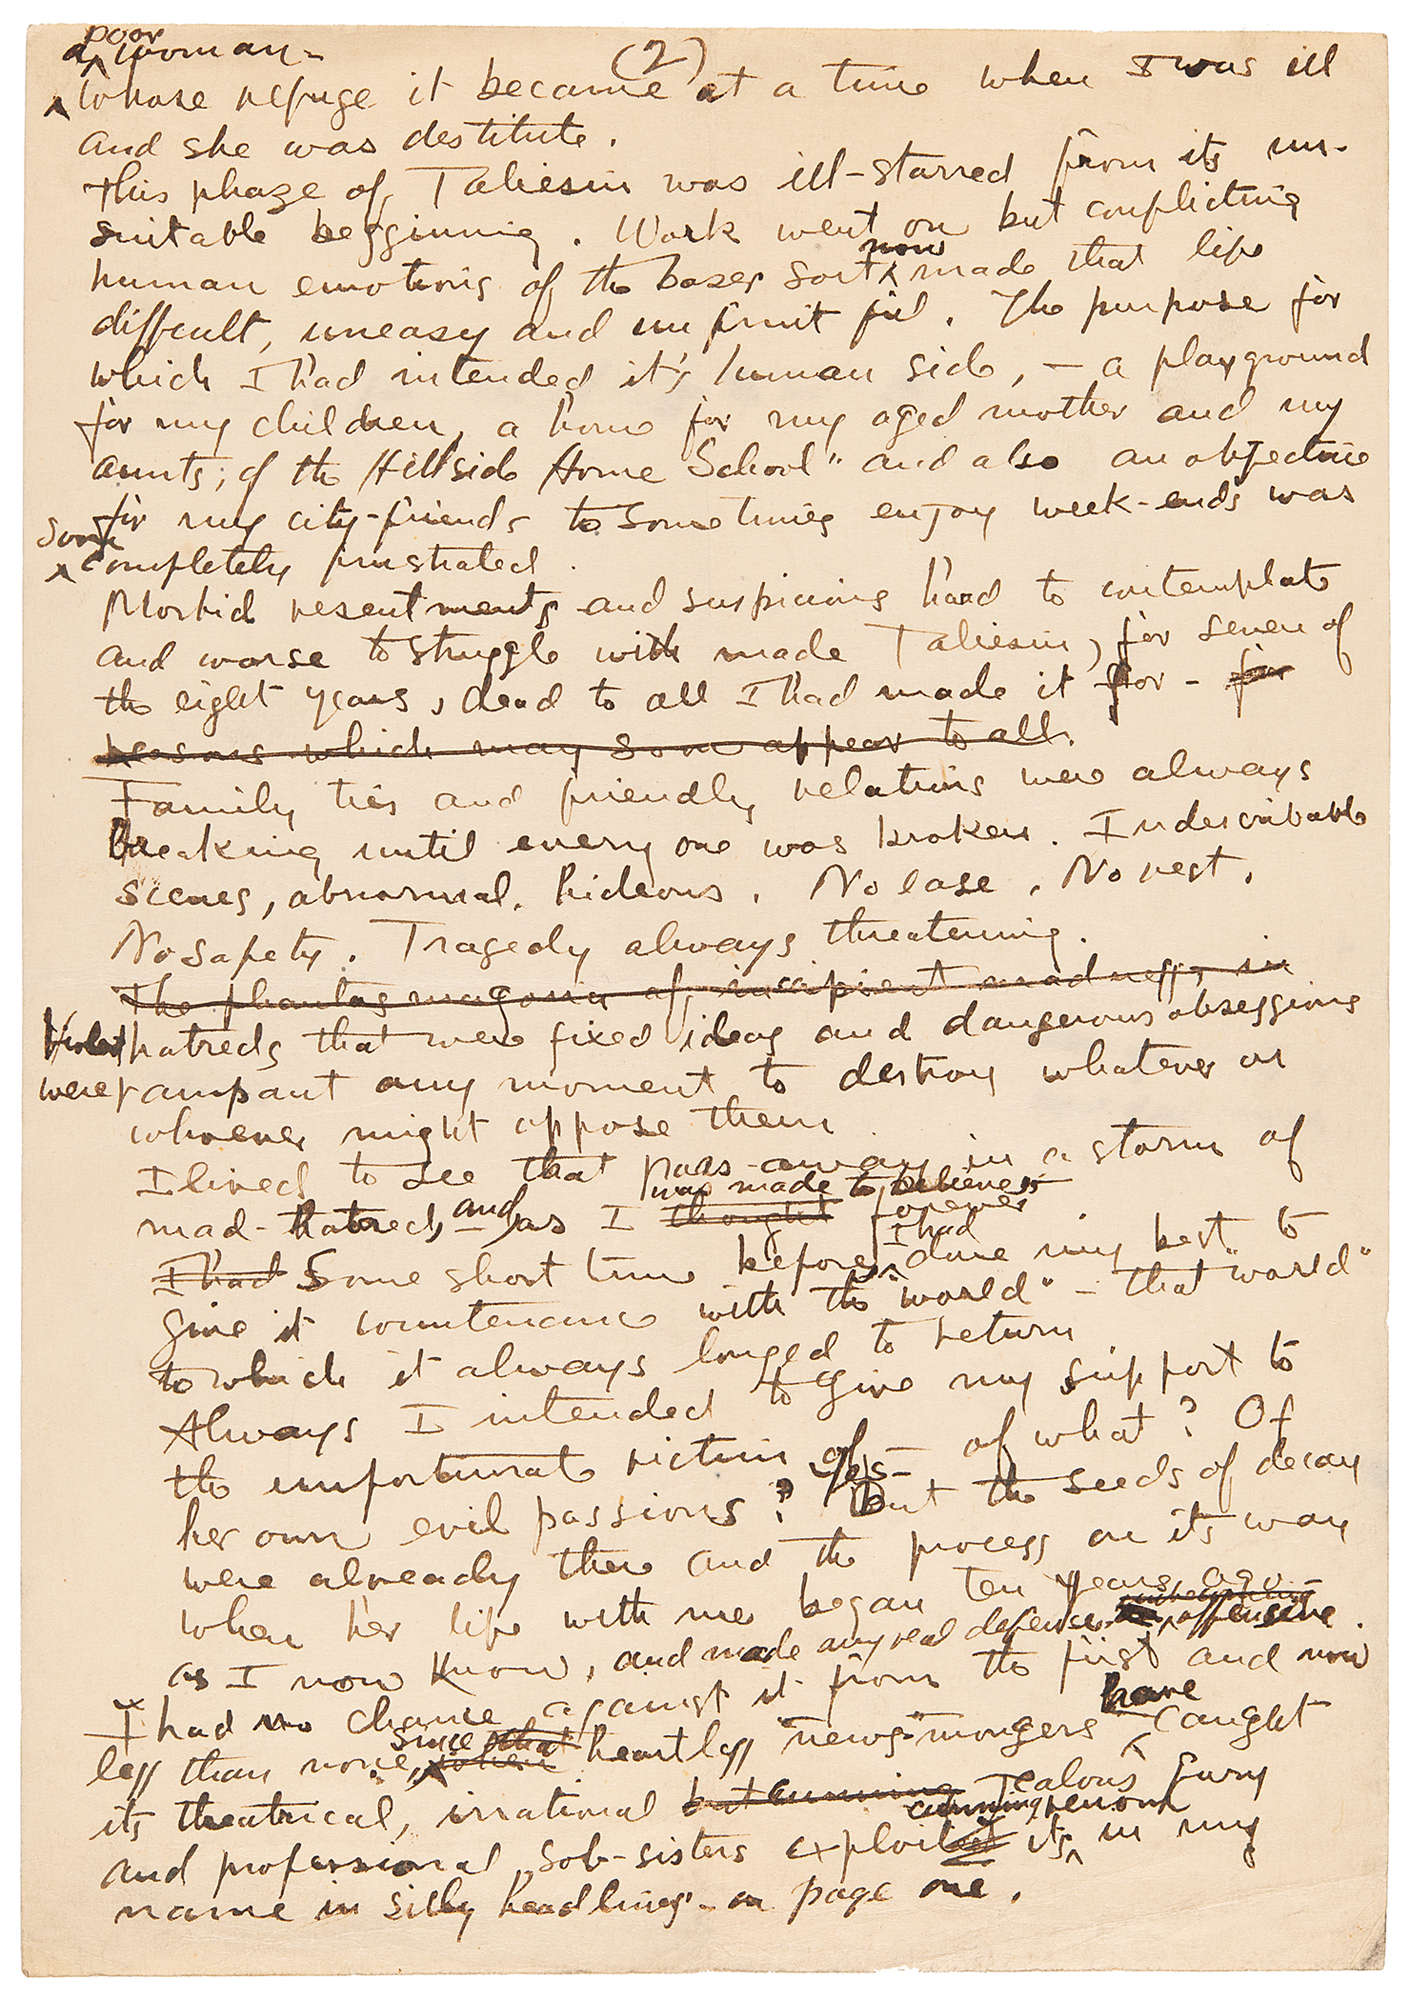 poor
a woman -
(2)
whose refuge it became at a time when I was ill
and she was destitute.
This phaze of Taliesin was ill-starred from its un-
suitable beggining. Work went on but conflicting
now
human emotions of the baser sort made that life
difficult, uneasy and unfruitful. The purpose for
which I had intended it's human side, - a playground
for my children, a home for my aged mother and my
aunts; of the Hillside Home School" and also an objective
for my city-friends to sometimes enjoy week-ends was
soon
completely frustrated.
Morbid resentments and suspicions hard to contemplate
and worse to struggle with made Taliesin, for seven of
the eight years, dead to all I had made it for - for
reasons which may soon appear to all.
Family ties and friendly relations were always
breaking until every one was broken. Indescribable
scenes, abnormal, hideous. No ease. No rest.
No safety. Tragedy always threatening.
The phantasmagoria of incipient madness, in
Violent hatreds that were fixed ideas and dangerous obsessions
were rampant any moment to destroy whatever or
whoever might oppose them.
I lived to see that pass away in a storm of
was made to believe
mad-hatred, and as I thought forever
I had
I had Some short time before, done my best to
give it countenance with the "world" - that "world"
to which it always longed to return
Always I intended to give my support to
the unfortunate victim of - of what? Of
her own evil passions? Yes - But the seeds of decay
were already there and the process on its way
when her life with me began ten years ago
as I now know, and made any real defense offensive.
I had no chance against it from the first and now
have
since that
less than none, when heartless "news-mongers" caught
its theatrical, irrational but cunning jealous fury
cunning venom
and professional sob-sisters exploited its in my
name in silly headlines - on page one.